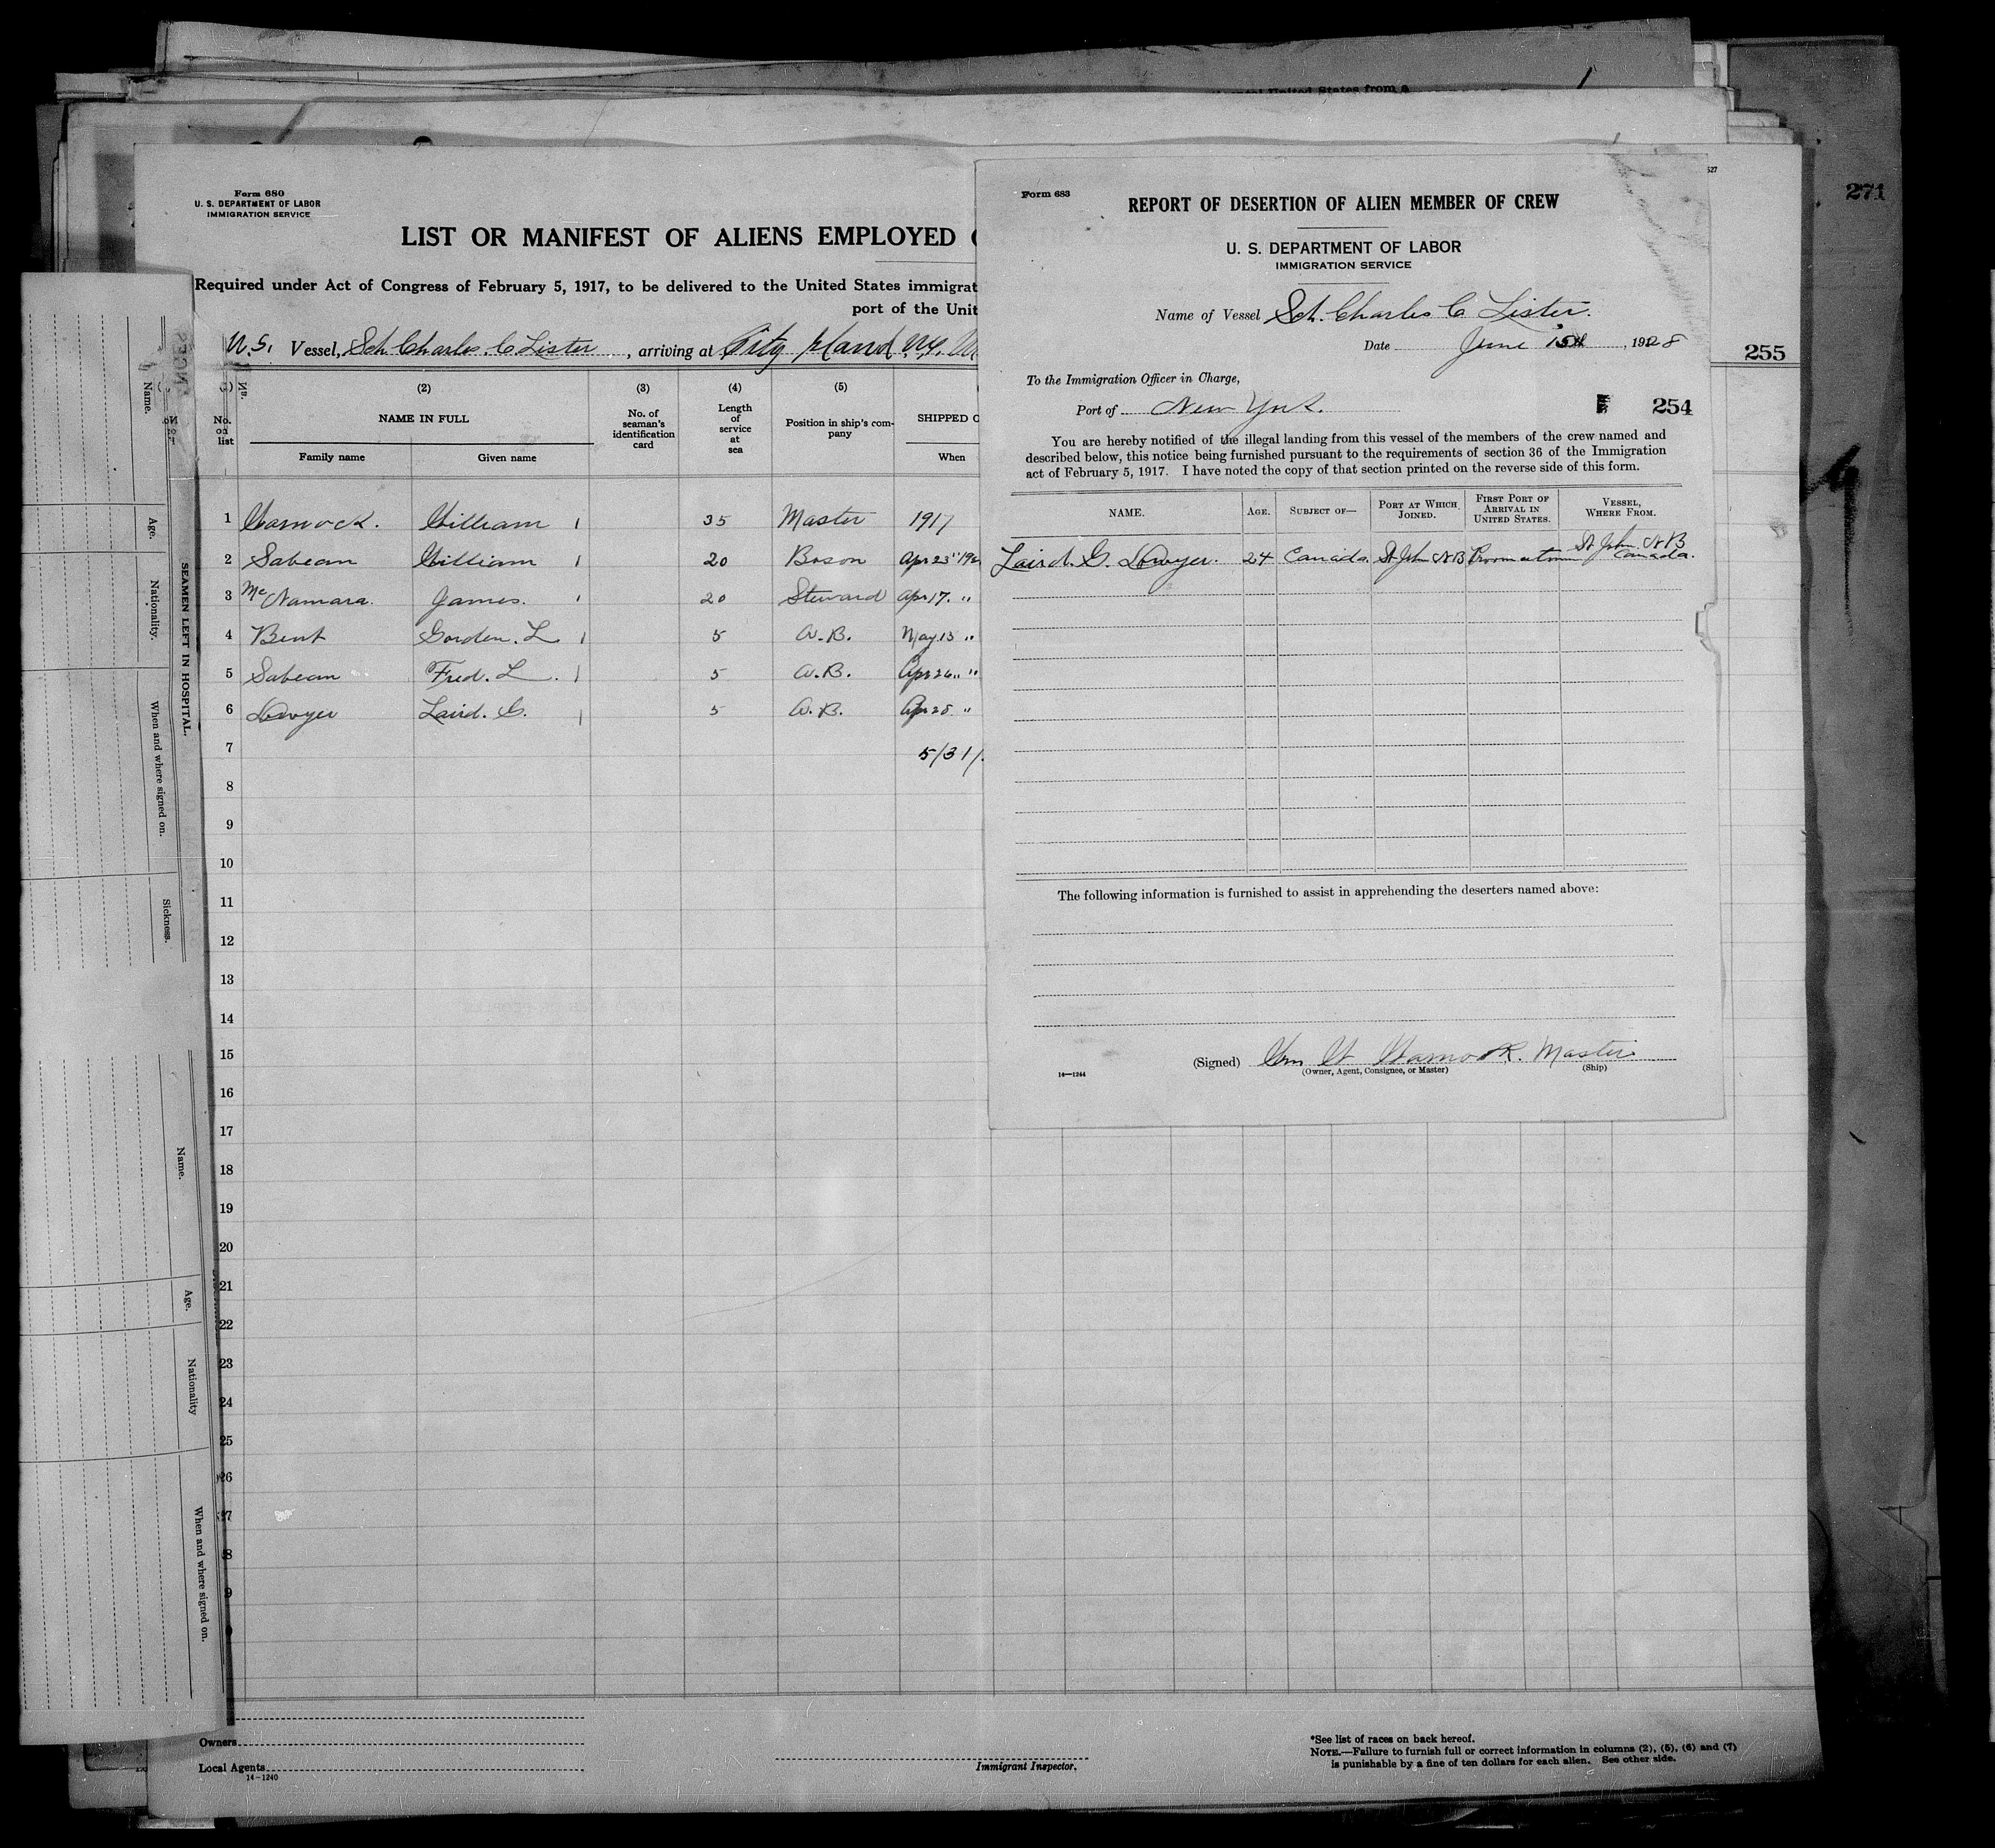 ntal United States from a
271
Form 680
U. S. DEPARTMENT OF LABOR
IMMIGRATION SERVICE
LIST OR MANIFEST OF ALIENS EMPLOYED
Required under Act of Congress of February 5, 1917, to be delivered to the United States immigrat
port of the Unit
U.S. Vessel, Sch. Charles. C Lister, arriving at City Island N.Y.
255
(2) (3) (4) (5)
No. on list
NAME IN FULL
Family name Given name
No. of seaman's identification card
Length of service at sea
Position in ship's company
SHIPPED O
When
1 Warnock. William 35 Master 1917
2 Sabean William 20 Boson Apr 23" 192
3 McNamara. James. 20 Steward Apr 17. "
4 Bent Gorden. L 5 A.B. May 13 "
5 Sabean Fred. L. 5 A.B. Apr 26 " "
6 Sawyer Laird. G. 5 A.B. Apr 25 "
7 5/31/
8
9
10
11
12
13
14
15
16
17
18
19
20
21
22
23
24
25
26
27
8
9
Owners
Local Agents
14-1240
Immigrant Inspector.
*See list of races on back hereof.
NOTE.—Failure to furnish full or correct information in columns (2), (5), (6) and (7)
is punishable by a fine of ten dollars for each alien. See other side.
527
Form 683
REPORT OF DESERTION OF ALIEN MEMBER OF CREW
U. S. DEPARTMENT OF LABOR
IMMIGRATION SERVICE
Name of Vessel Sch. Charles C. Lister.
Date June 15th, 1928
To the Immigration Officer in Charge,
Port of New York.
254
You are hereby notified of the illegal landing from this vessel of the members of the crew named and
described below, this notice being furnished pursuant to the requirements of section 36 of the Immigration
act of February 5, 1917. I have noted the copy of that section printed on the reverse side of this form.
NAME. AGE. SUBJECT OF— PORT AT WHICH JOINED. FIRST PORT OF ARRIVAL IN UNITED STATES. VESSEL, WHERE FROM.
Laird. G. Sawyer. 24 Canada. St John N B St John N B Canada.
The following information is furnished to assist in apprehending the deserters named above:
(Signed) Wm W Warnock. Master
(Owner, Agent, Consignee, or Master) (Ship)
14—1244
SEAMEN LEFT IN HOSPITAL.
Name.
Age.
Nationality.
When and where signed on.
Sickness.
Name.
Age.
Nationality
When and where signed on.